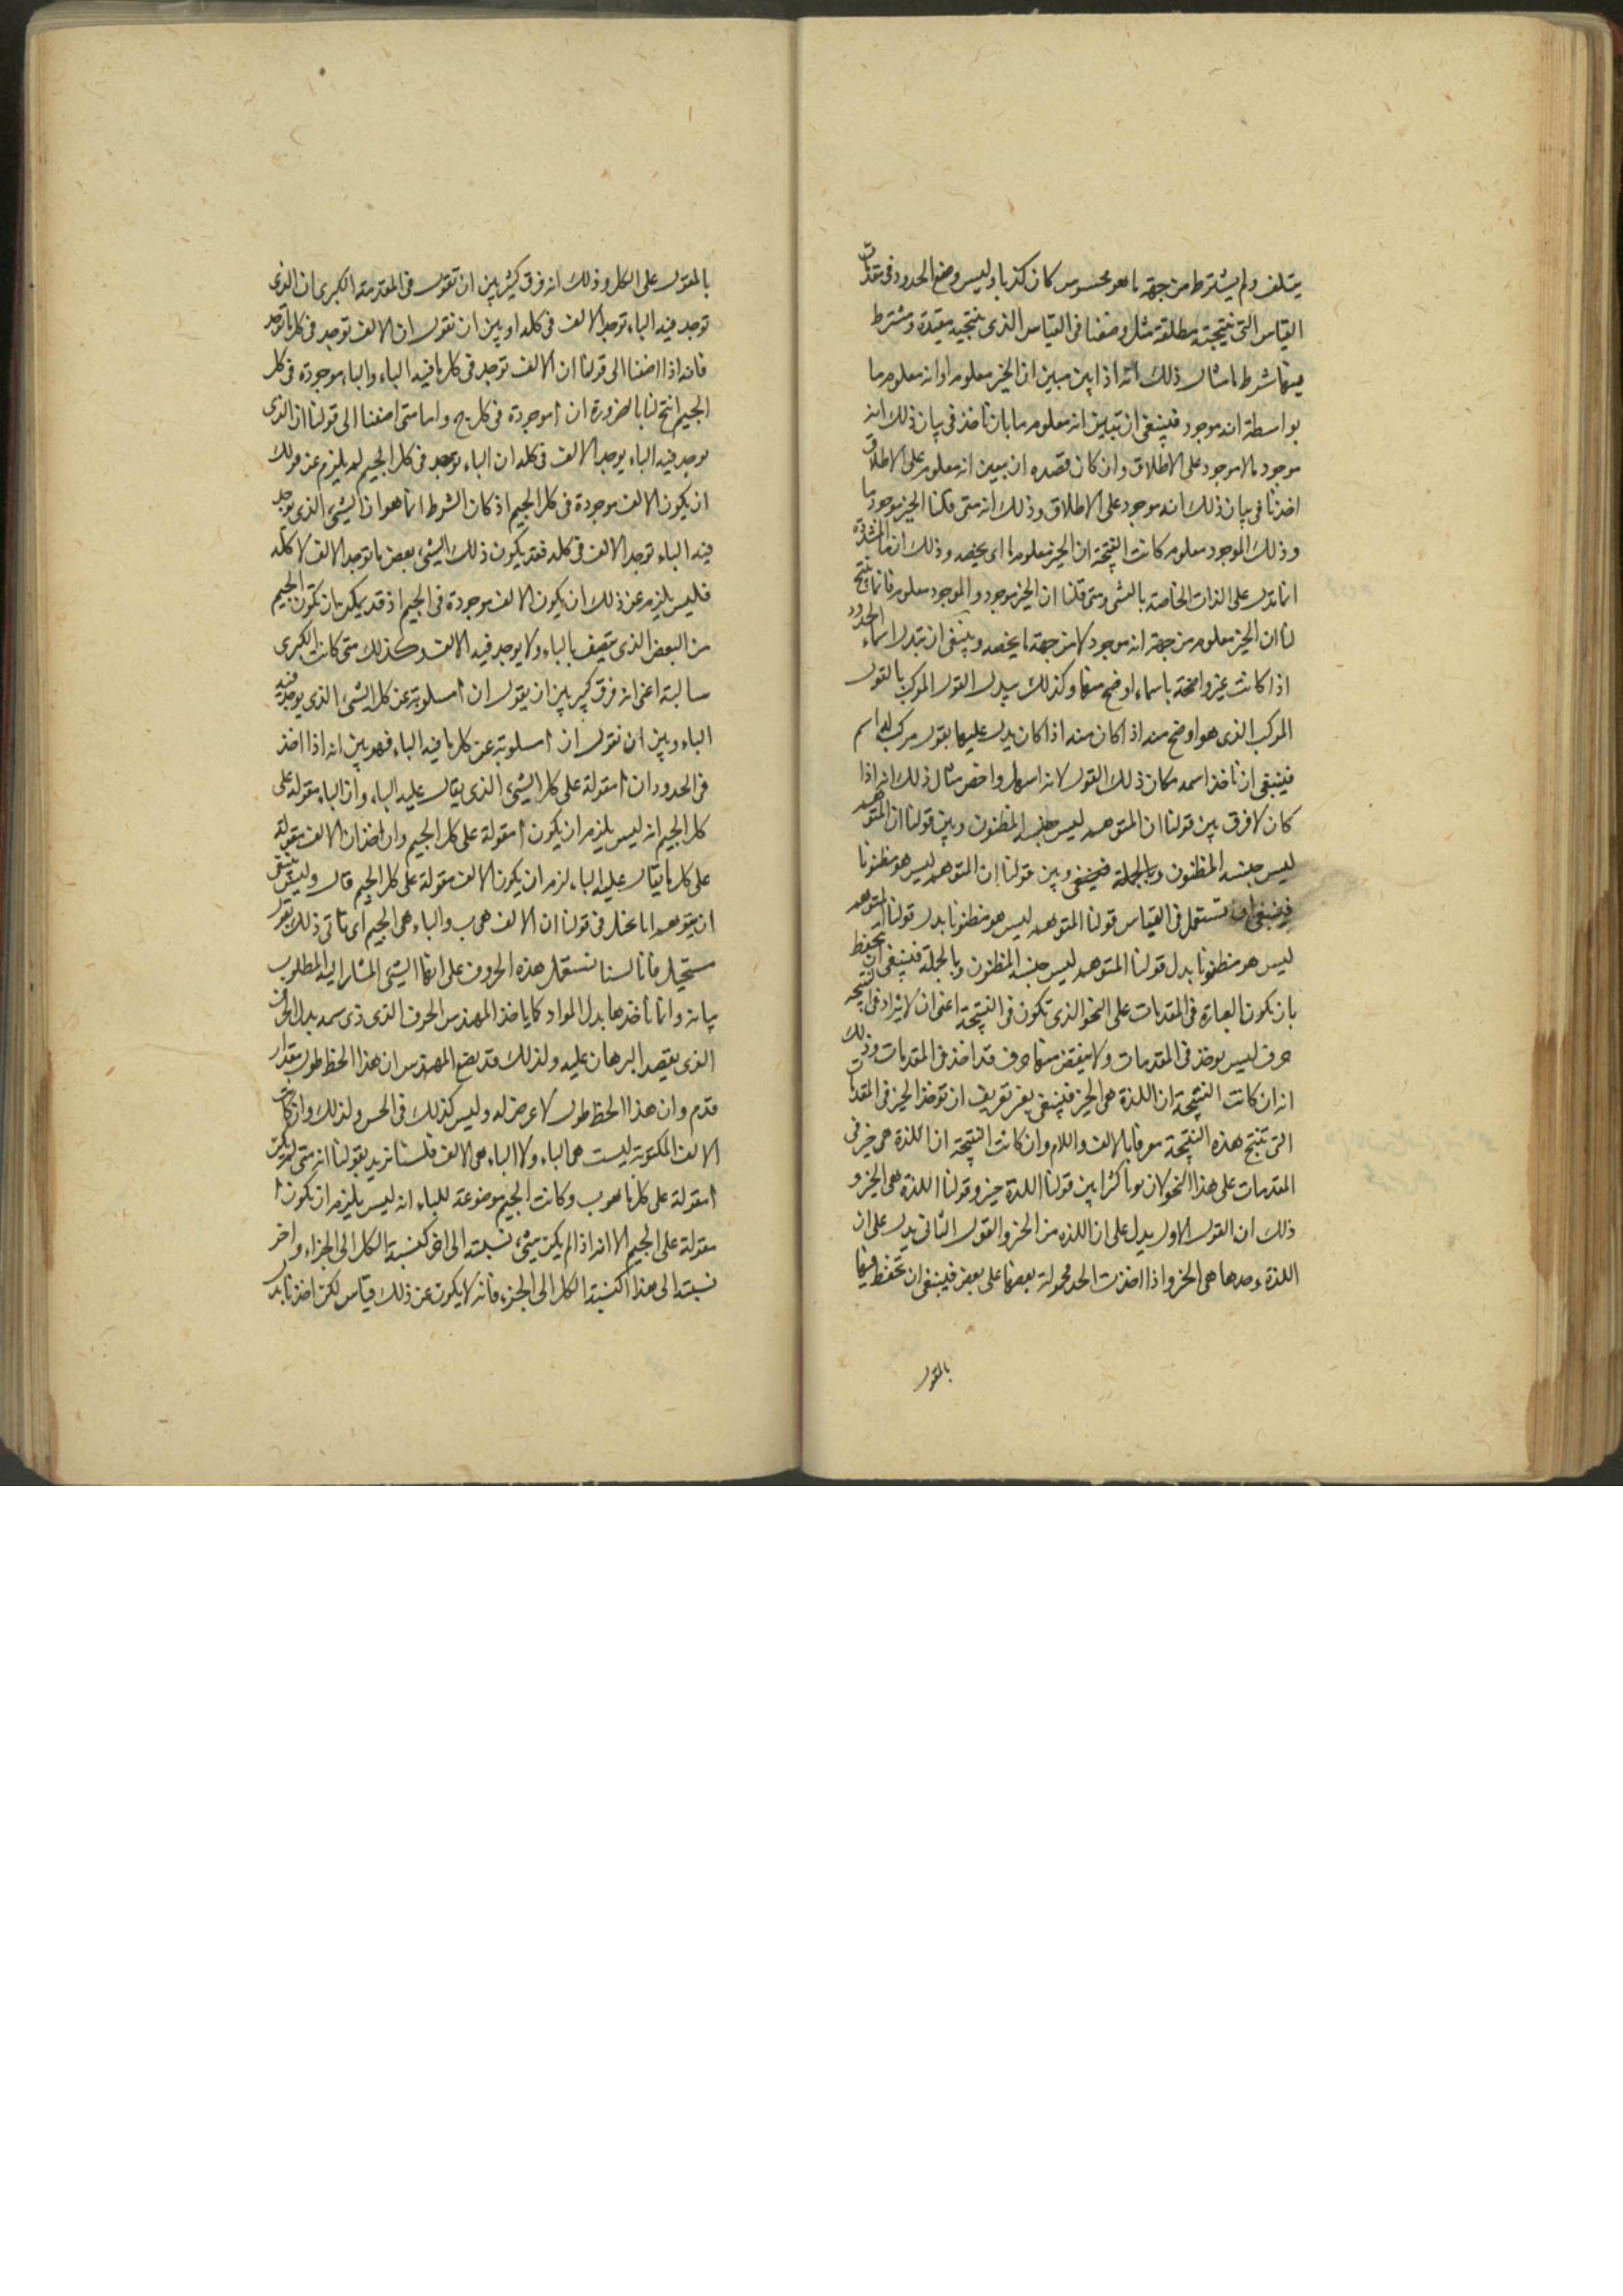 يتلف ولم يشترط من جهة ما هو محسوس كان كذبا وليس وضع الحدود في مقدمات
القياس التي نتيجته مطلقة مثل وضعنا في القياس الذي نتيجته مقيدة ومشترط
فيها شرط ما مثال ذلك انه اذا بين مبين ان الخير معلوم او انه معلوم ما
بواسطة انه موجود فينبغي ان تبين انه معلوم ما بان ناخذ في بيان ذلك انه
موجود ما لا موجود على الاطلاق وان كان قصده ان يبين انه معلوم على الاطلاق
اخذنا في بيان ذلك انه موجود على الاطلاق وذلك انه متى قلنا الخير موجود ما
وذلك الموجود معلوم كانت النتيجة ان الخير معلوم ما اي يخصه وذلك ان ما
انما تدل على الذات الخاصة بالشي ومتى قلنا ان الخير موجود والموجود معلوم فانما ينتج
لنا ان الخير معلوم من جهة انه موجود لا من جهة ما يخصه وينبغي ان تبدل اسماء الحدود
اذا كانت غير واضحة باسماء اوضح منها وكذلك يبدل القول المركب بالقول
المركب الذي هو اوضح منه اذا كان منه اذا كان يدل عليها بقول مركب له اسم
فينبغي ان ناخذ اسمه مكان ذلك القول لانه اسهل واخصر مثال ذلك انه اذا
كان لا فرق بين قولنا ان المتوهم ليس جنسه المظنون وبين قولنا ان المتوهم
ليس جنسه المظنون وبالجملة فينبغي وبين قولنا ان المتوهم ليس هو مظنونا
فينبغي ان تستعمل في القياس قولنا المتوهم ليس هو مظنونا بدل قولنا المتوهم
ليس هو مظنونا بدل قولنا المتوهم ليس جنسه المظنون وبالجملة فينبغي ان تحفظ
بان تكون العبارة في المقدمات على النحو الذي تكون في النتيجة اعني ان لا يزاد في النتيجة
حرف ليس يوخذ في المقدمات ولا ينقص منها حرف قد اخذ في المقدمات وذلك
انه ان كانت النتيجة ان اللذة هي الخير فينبغي بغير تعريف ان توخذ الخير في المقدمات
التي تنتج هذه النتيجة معرفا بالالف واللام وان كانت النتيجة ان اللذة هي خير في
المقدمات على هذا النحو لان بونا كثرا بين قولنا اللذة خير وقولنا اللذة هي الخير و
ذلك ان القول الاول يدل على ان اللذه من الخير والقول الثاني يدل على ان
اللذة وحدها هي الخير واذا اخذت الحد محمولة بعضها على بعض فينبغي ان تحفظ فيها
بالمقول
بالمقول على الكل وذلك انه فرق كثير بين ان تقول في المقدمة الكبرى ان الذي
توجد فيه الباء توجد الالف في كله او بين ان نقول ان الالف توجد في كل ما توجد
فانه اذا اضفنا الى قولنا ان الالف توجد في كل ما فيه الباء والباء موجودة في كل
الجيم انتج لنا بالضرورة ان ا موجودة في كل ج واما متى اضفنا الى قولنا ان الذي
يوجد فيه الباء يوجد الالف في كله ان الباء توجد في كل الجيم لم يلزم عن قولك
ان يكون الالف موجودة في كل الجيم اذ كان الشرط انما هو ان الشيء الذي توجد
فيه الباء توجد الالف في كله فقد يكون ذلك الشيء بعض ما توجد الالف لا كله
فليس يلزم عن ذلك ان يكون الالف موجودة في الجيم اذ قد يمكن بان تكون الجيم
من البعض الذي يتصف بالباء ولا يوجد فيه الالف وكذلك متى كانت الكبرى
سالبة اعني انه فرق كبير بين ان يقول ان ا مسلوبة عن كل الشيء الذي يوجد فيه
الباء وبين ان نقول ان ا مسلوبة عن كل ما فيه الباء فهو بين انه اذا اخذ
في الحدود ان ا مقولة على كل الشيء الذي يقال عليه الباء وان الباء مقولة على
كل الجيم انه ليس يلزم ان يكون ا مقولة على كل الجيم وان اخذ ان الالف مقولة
على كل ما يقال عليه الباء لزم ان يكون الالف مقولة على كل الجيم قال وليس ينبغي
ان يتوهم انا نخل في قولنا ان الالف هي ب والباء هي الجيم اي ناتي ذلك بقول
مستحيل فانا لسنا نستعمل هذه الحروف على انها الشيء المشار اليه المطلوب
بيانه وانما ناخذها بدل المواد كما ياخذ المهندس الحرف الذي يرسمه بدل الحرف
الذي يقصد البرهان عليه ولذلك قد يضع المهندس ان هذا الخط طول مقدار
قدم وان هذا الخط طول لا عرض له وليس كذلك في الحس ولذلك وان كانت
الالف المكتوبة ليست هي الباء ولا الباء هي الالف فلسنا نريد بقولنا انه متى لم يكن
ا مقولة على كل ما هو ب وكانت الجيم موضوعة للباء انه ليس يلزم ان يكون ا
مقولة على الجيم الا انه اذا لم يكن شيء نسبته الى اخر كنسبة الكل الى الجزء واخر
نسبته الى هذا كنسبة الكل الى الجزء فانه لا يكون عن ذلك قياس لكن اخذنا بدل